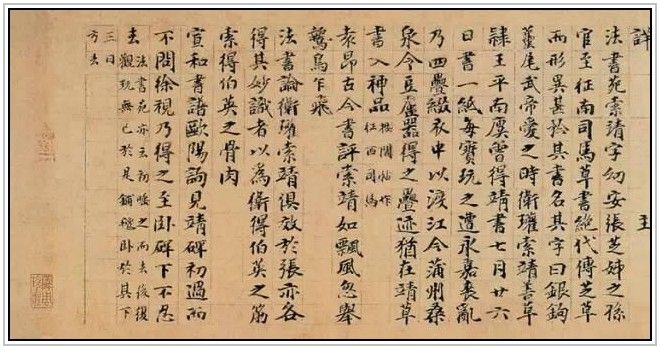 詳 王
法書苑索靖字幼安張芝姊之孫
官至征南司馬草書絶代傳芝草
而形異甚矜其書名其字曰銀鉤
蠆尾武帝愛之時衛瓘索靖善草
隸王平南廙曾得靖書七月廿六
日書一紙每寶玩之遭永嘉喪亂
乃四疊綴衣中以渡江今蒲州桑
泉令豆盧器得之疊迹猶在靖草
書入神品 按閣帖作
征西司馬
袁昂古今書評索靖如飄風忽舉
鷙鳥乍飛
法書論衛瓘索靖俱效於張亦各
得其妙識者以為衛得伯英之筋
索得伯英之骨肉
宣和書譜歐陽詢見靖碑初過而
不問徐視乃得之至卧碑下不忍
去 法書苑亦云初唾之而去後復
觀玩無已於是鋪氊卧於其下
三日
方去